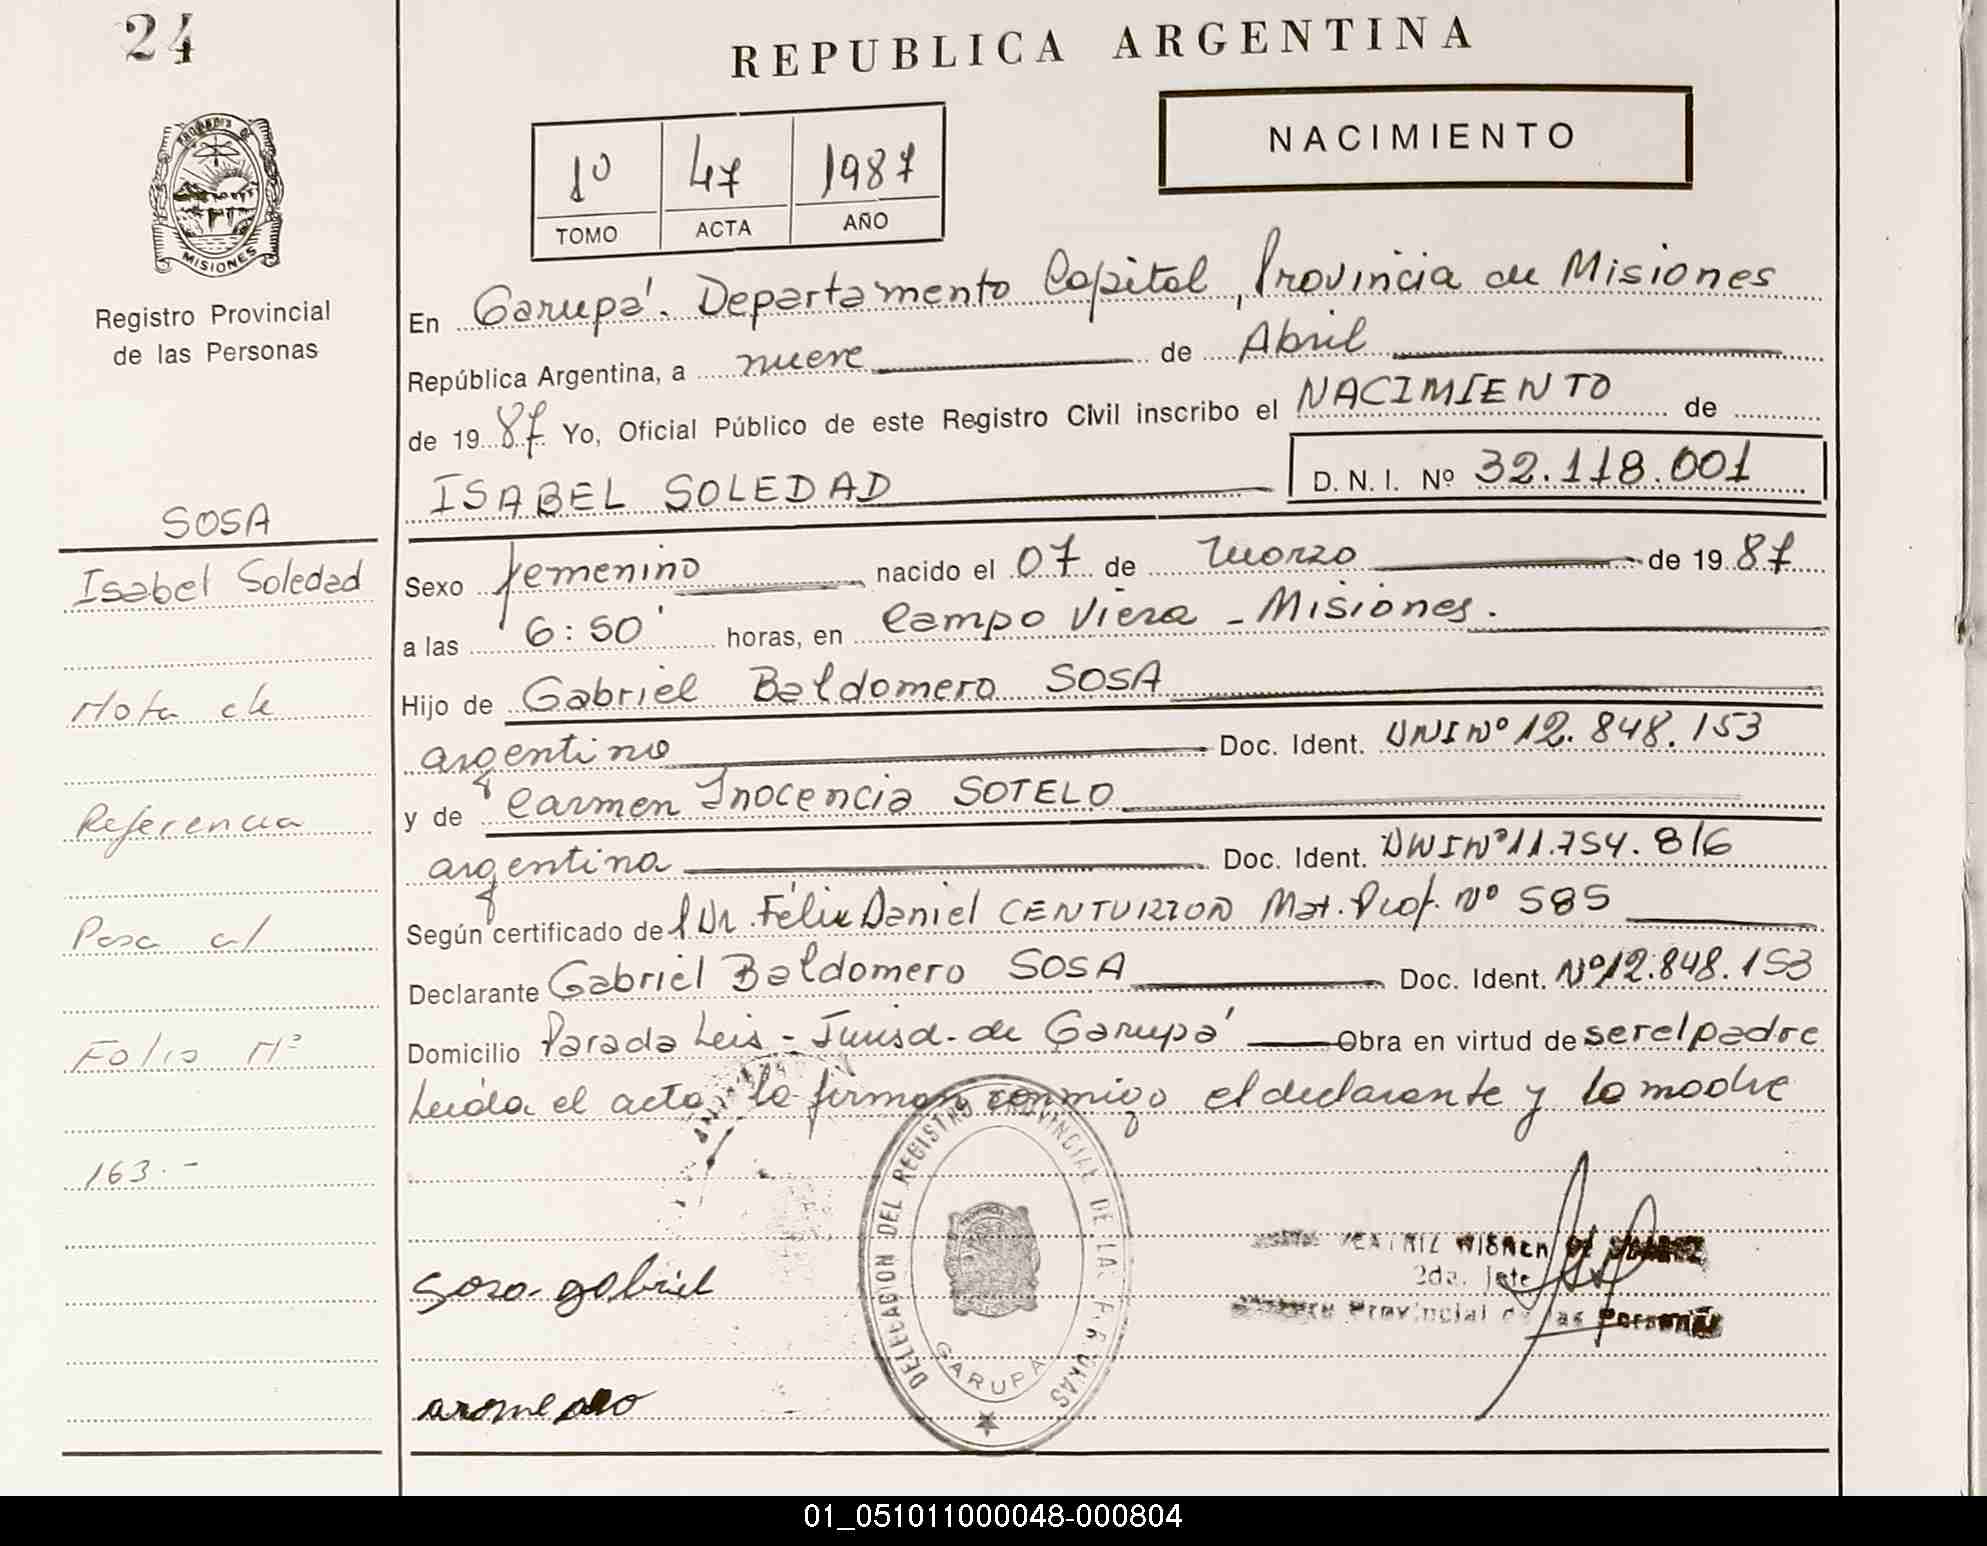 24
REPUBLICA ARGENTINA
NACIMIENTO
1º 47 1987
TOMO ACTA AÑO
MISIONES
Registro Provincial
de las Personas
En Garupá. Departamento Capital, Provincia de Misiones
República Argentina, a nueve de Abril
de 1987 Yo, Oficial Público de este Registro Civil inscribo el NACIMIENTO de
ISABEL SOLEDAD D. N. I. Nº 32.118.001
Sexo femenino nacido el 07 de Marzo de 1987
a las 6:50' horas, en Campo Viera - Misiones.
Hijo de Gabriel Baldomero SOSA
argentino Doc. Ident. DNI Nº 12.848.153
y de Carmen Inocencia SOTELO
argentina Doc. Ident. DNI Nº 11.754.816
Según certificado del Dr. Félix Daniel CENTURION Mat. Prof. Nº 585
Declarante Gabriel Baldomero SOSA Doc. Ident. Nº 12.848.153
Domicilio Parada Leis - Jurisd. de Garupá Obra en virtud de ser el padre
Leída el acta la firman conmigo el declarante y la madre
SOSA
Isabel Soledad
Nota de
Referencia
Pasa al
Folio Nº
163.-
DELEGACION DEL REGISTRO PROVINCIAL DE LAS PERSONAS
GARUPA
sosa gabriel
2da. Jefe
Provincial de las Personas
01_051011000048-000804